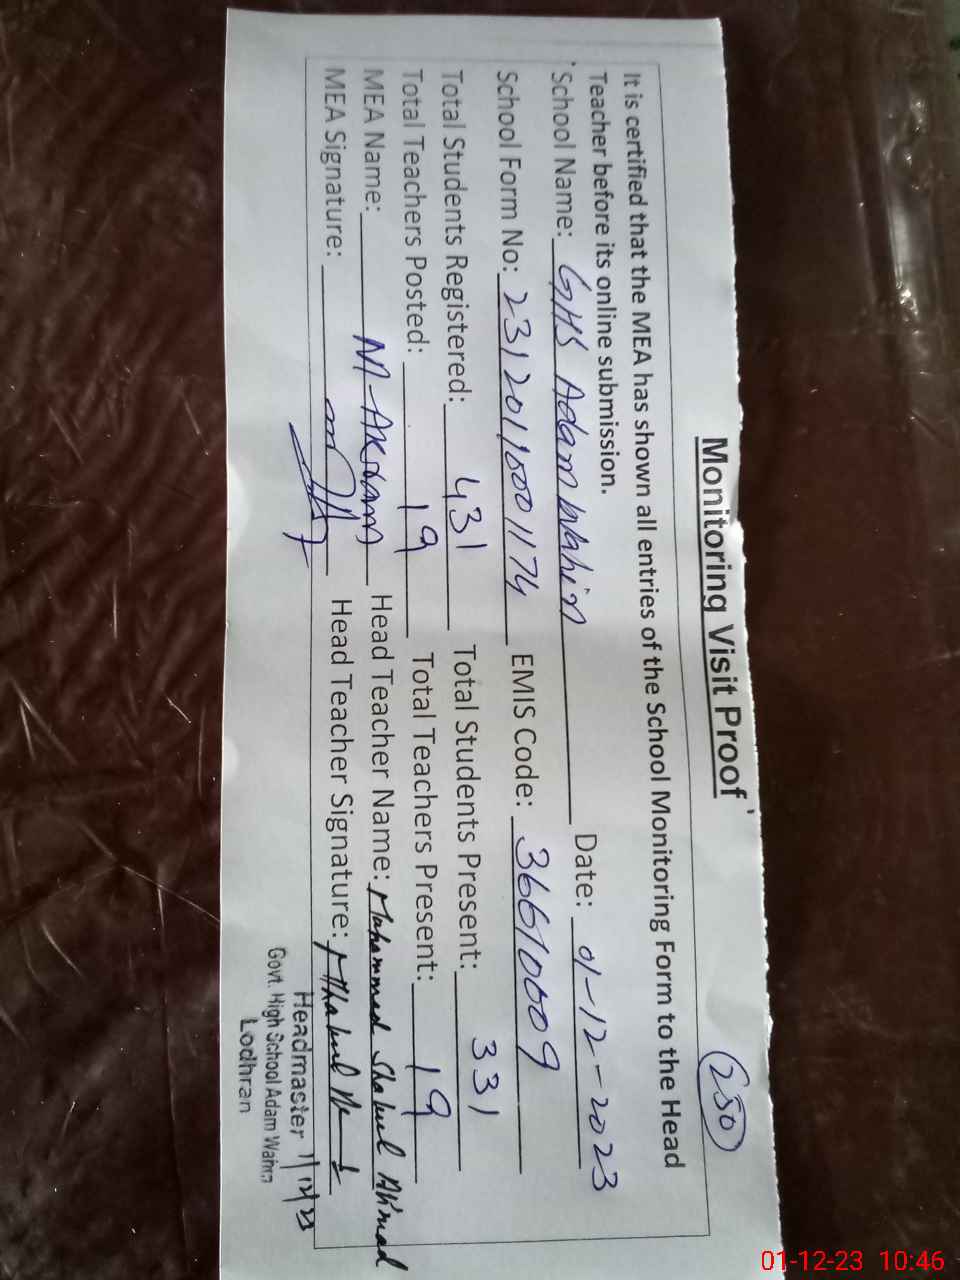 Monitoring Visit Proof
250
It is certified that the MEA has shown all entries of the School Monitoring Form to the Head
Teacher before its online submission.
School Name: GHS Adam Wahin Date: 01-12-2023
School Form No: 23120110001174 EMIS Code: 36610009
Total Students Registered: 431 Total Students Present: 331
Total Teachers Posted: 19 Total Teachers Present: 19
MEA Name: M-Akram Head Teacher Name: Mohammad Shakeel Ahmad
MEA Signature: Head Teacher Signature:
Headmaster 1/12/23
Govt. High School Adam Wahin
Lodhran
01-12-23 10:46